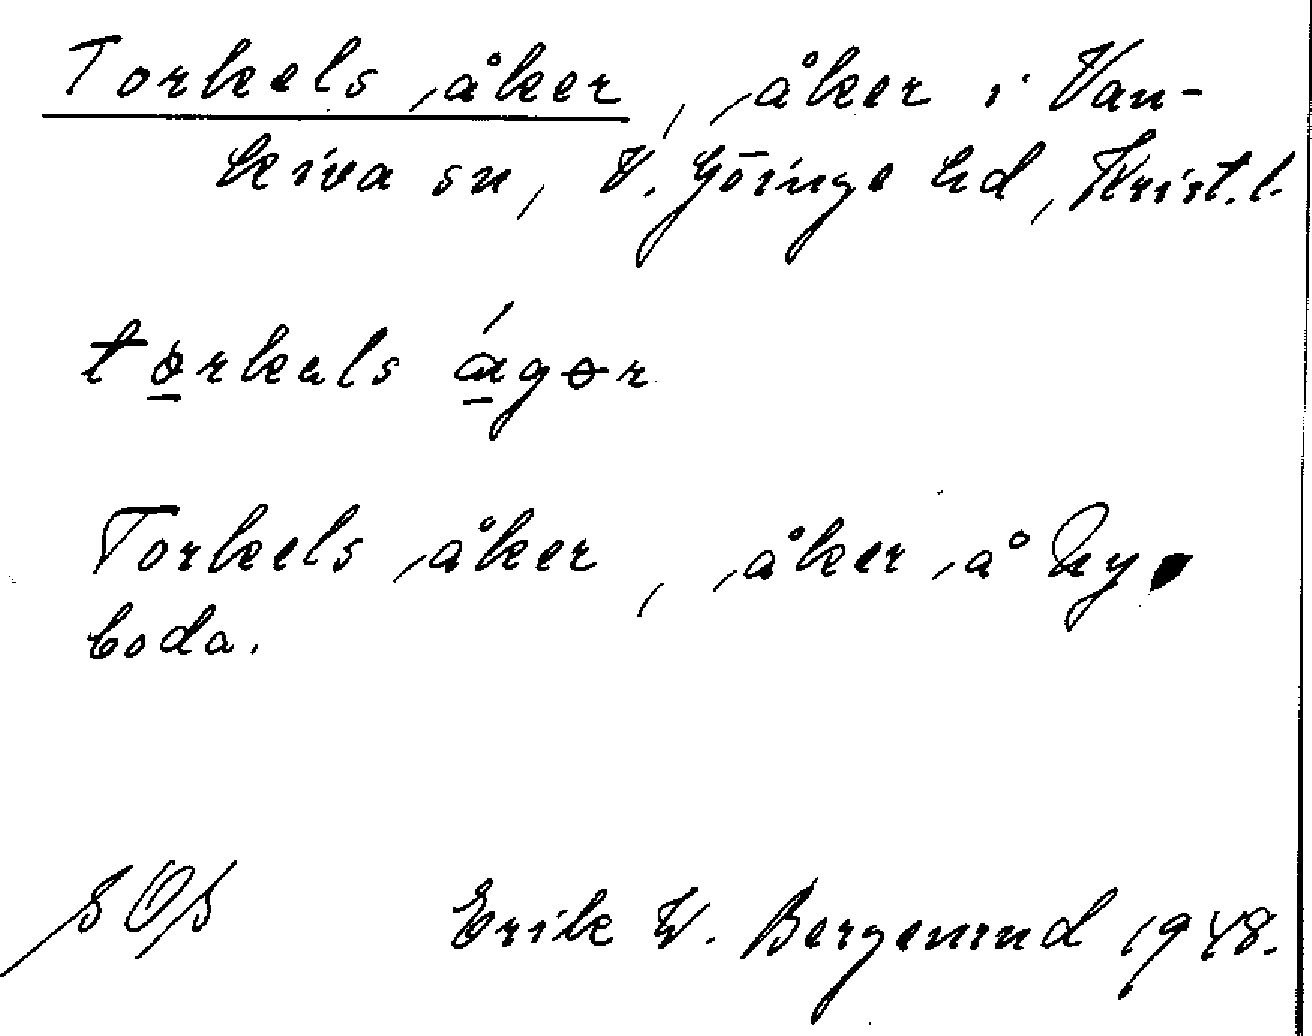 Torkels åker, åker i Van-
kiva sn, V. Göinge hd, Krist.l.
tọrkals ágɵr
Torkels åker, åker å Ny
boda.
SOS Erik W. Bergenund 1948.